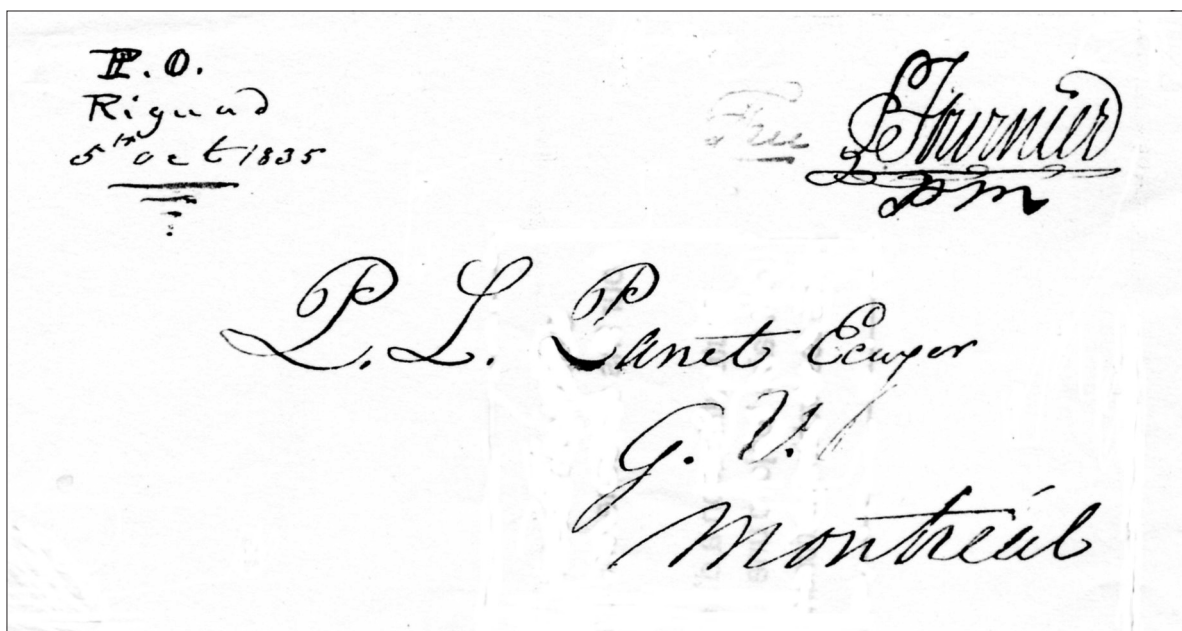 P.O.
Rigaud
5th oct 1835
Free Fournier
pm
P. L. Panet Ecuyer
G. V.
Montréal